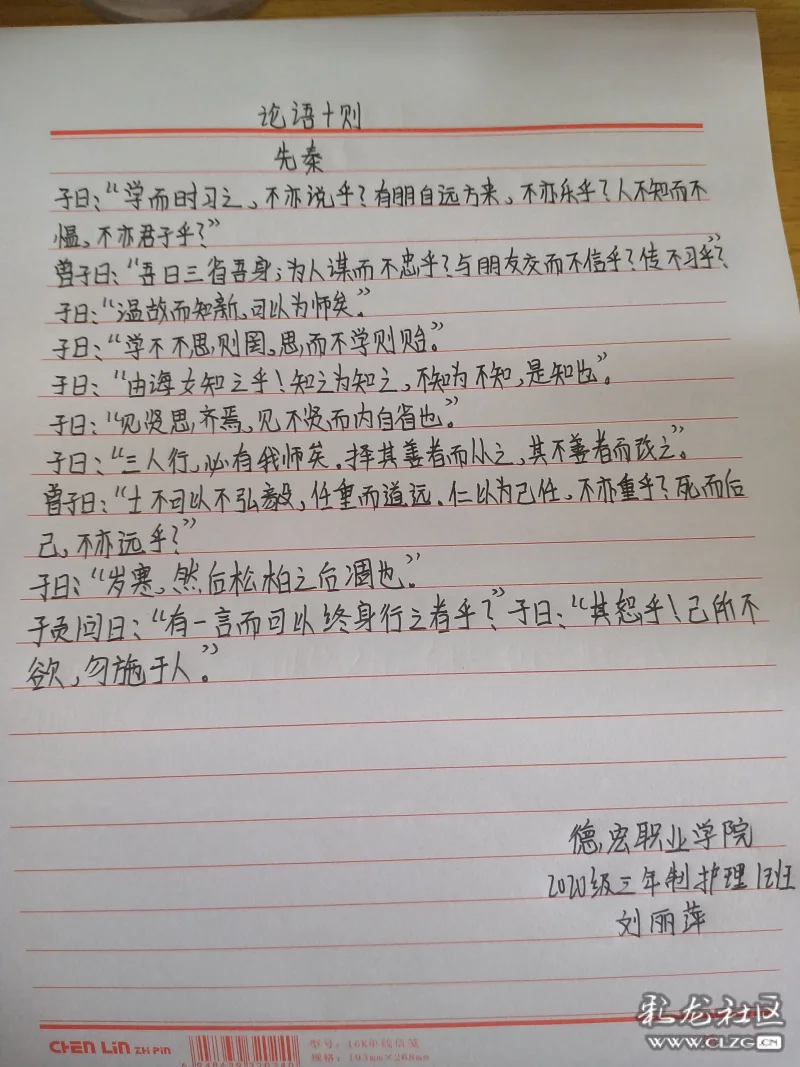 论语十则
先秦
子曰：“学而时习之，不亦说乎？有朋自远方来，不亦乐乎？人不知而不
愠，不亦君子乎？”
曾子曰：“吾日三省吾身；为人谋而不忠乎？与朋友交而不信乎？传不习乎？”
子曰：“温故而知新，可以为师矣。”
子曰：“学不不思，则罔。思，而不学则贻。”
子曰：“由诲女知之乎！知之为知之，不知为不知，是知也”。
子曰：“见贤思，齐焉，见不贤而内自省也。”
子曰：“三人行，必有我师矣。择其善者而从之，其不善者而改之”。
曾子曰：“士不可以不弘毅，任重而道远。仁以为己任，不亦重乎？死而后
己，不亦远乎？”
子曰：“岁寒，然后松柏之后凋也。”
子贡问曰：“有一言而可以终身行之者乎？”子曰：“其恕乎！己所不
欲，勿施于人。”
德宏职业学院
2020级三年制护理1班
刘丽萍
CHEN LIN ZH PIN
型号：16K单线信笺
规格：193mm×268mm
彩龙社区
WWW.CLZG.CN